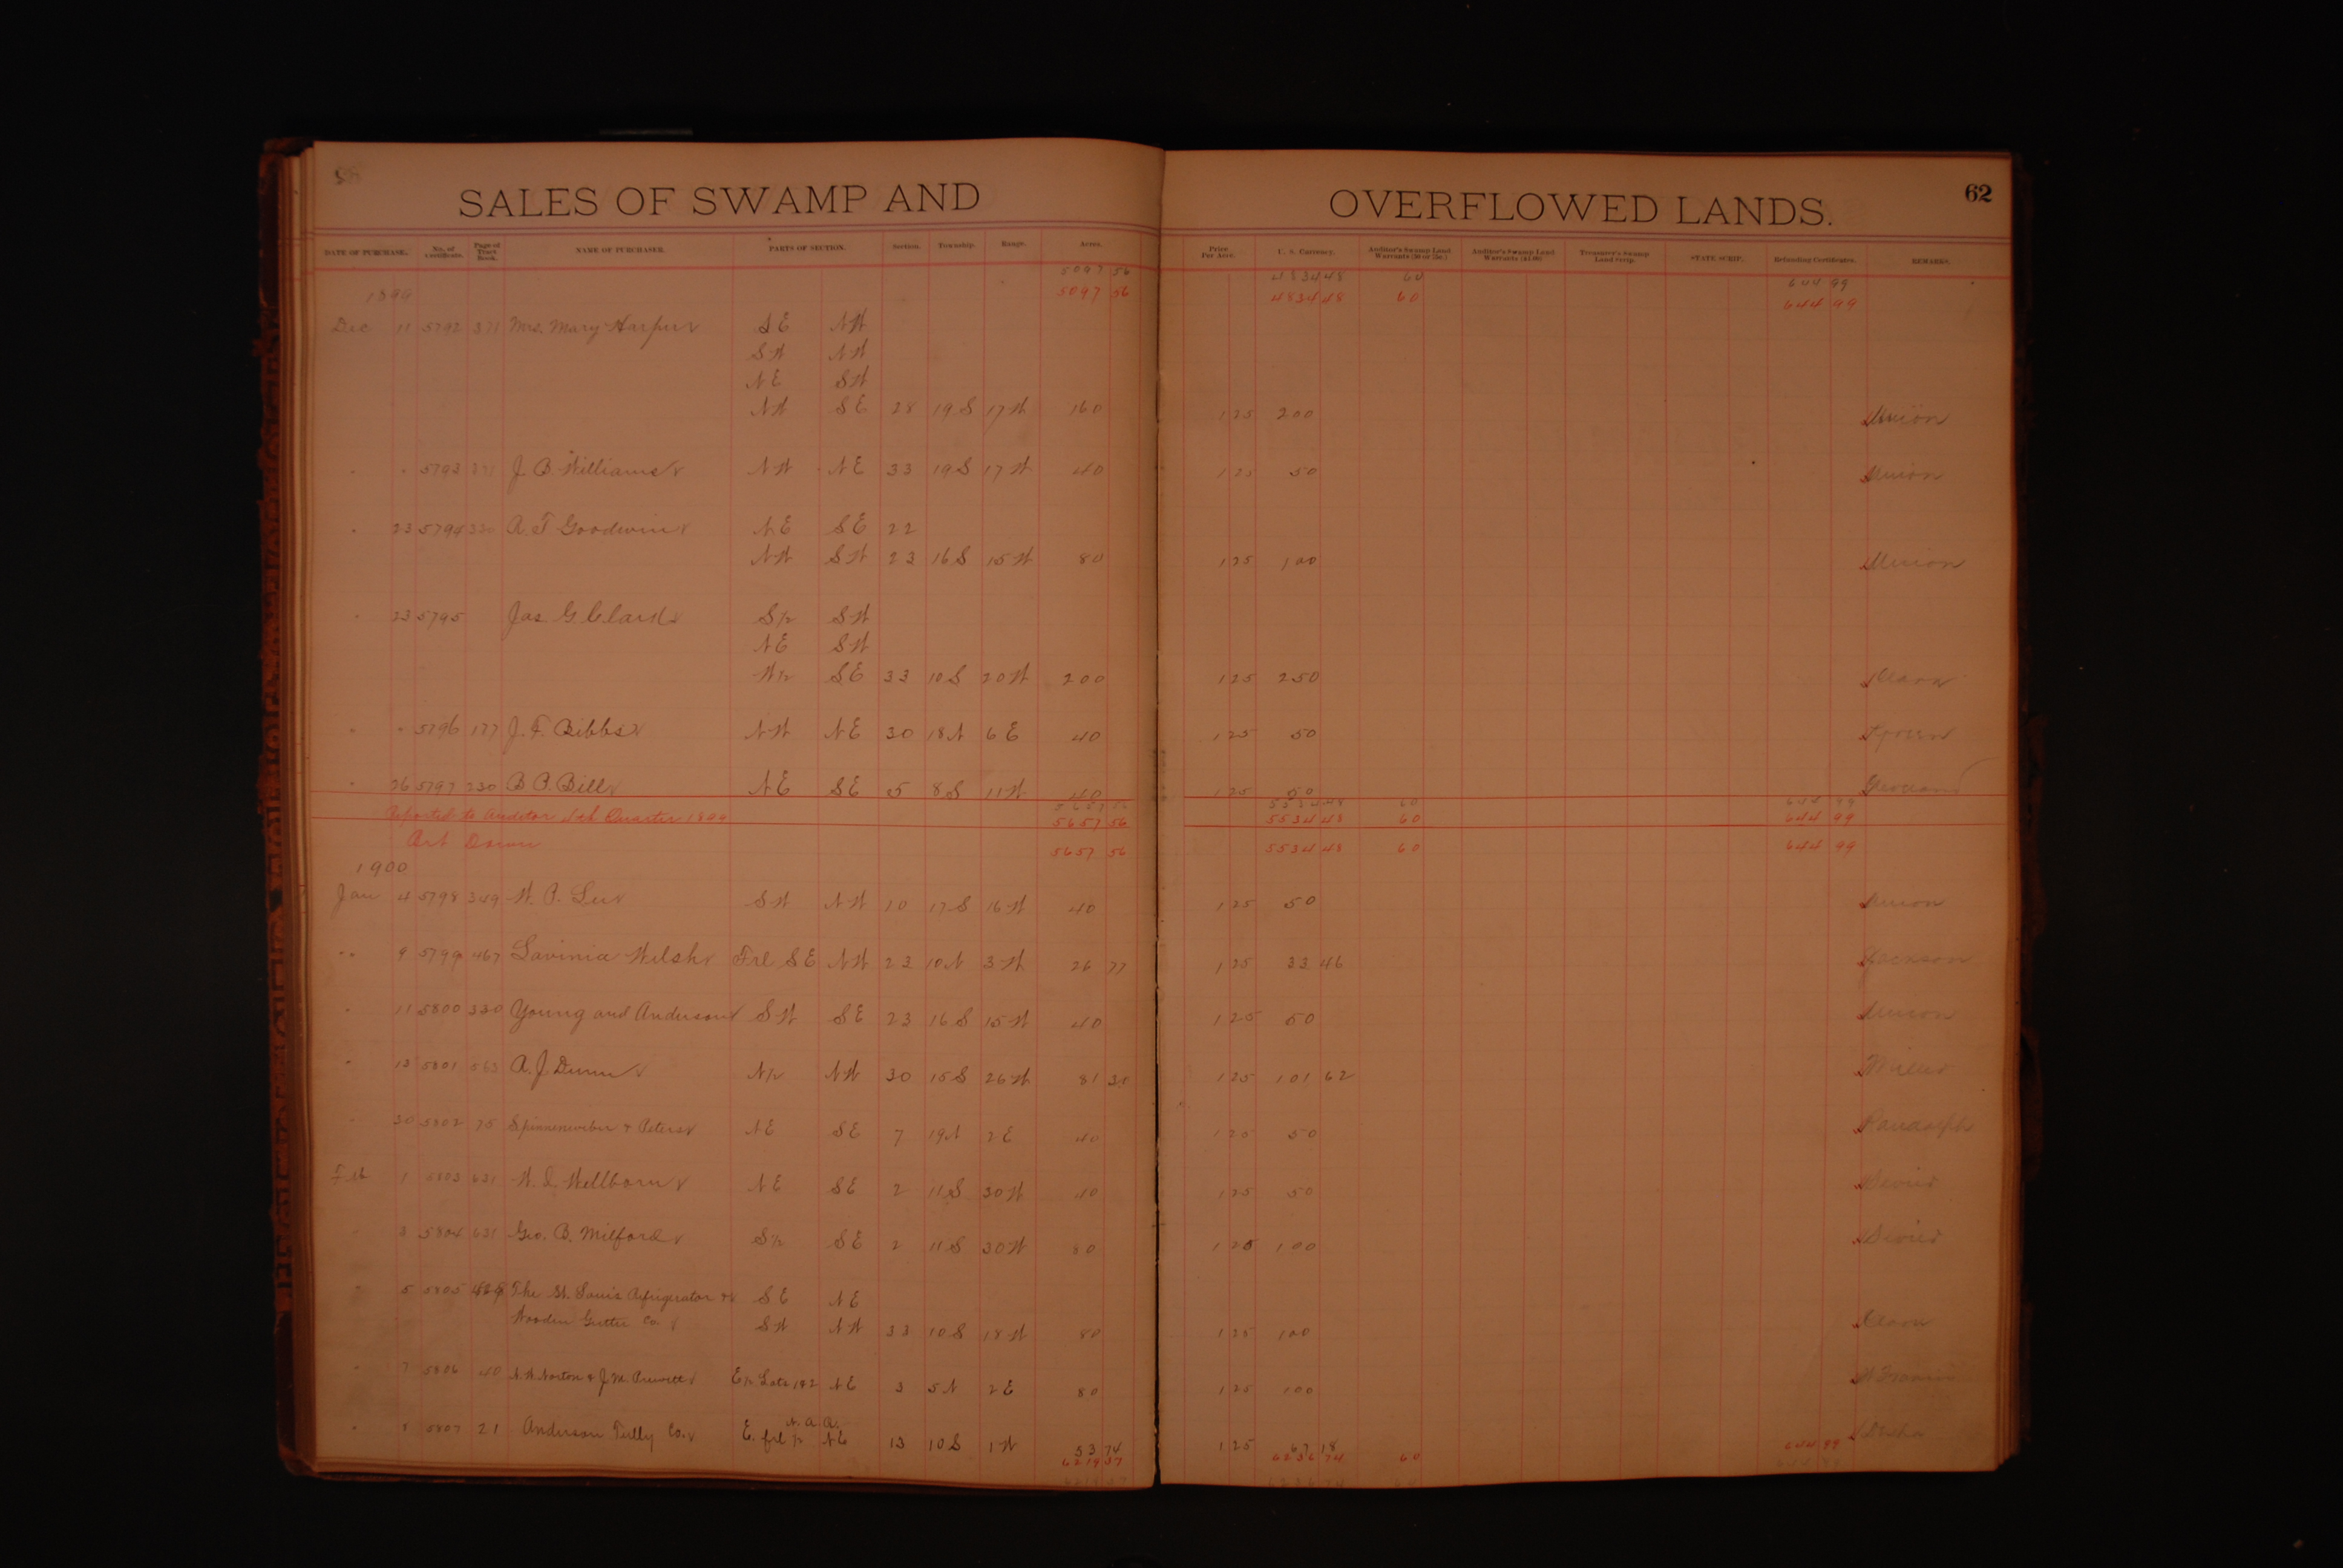 SALES OF SWAMP AND OVERFLOWED LANDS.
62
DATE OF PURCHASE. No. of Certificate. Page of Tract Book. NAME OF PURCHASER. PARTS OF SECTION. Section. Township. Range. Acres. Price Per Acre. U. S. Currency. Auditor's Swamp Land Warrants (50 or 75c.) Auditor's Swamp Land Warrants ($1.00) Treasurer's Swamp Land Scrip. STATE SCRIP. Refunding Certificates. REMARKS.
5097 56 4834 48 60 644 99
1899 5097 56 4834 48 60 644 99
Dec 11 5792 371 Mrs. Mary Harper SE NW
SW NW
NE SW
NW SE 28 19S 17W 160 125 200 Union
" " 5793 371 J. B. Williams NW NE 33 19S 17W 40 125 50 Union
" 23 5794 330 A. T. Goodwin NE SE 22
NW SW 23 16S 15W 80 125 100 Union
" 23 5795 Jas. G. Clark S½ SW
NE SW
W½ SE 33 10S 20W 200 125 250 Clark
" " 5796 177 J. F. Bibbs NW NE 30 18N 6E 40 125 50 Green
" 26 5797 230 B. P. Bill NE SE 5 8S 11W 40 125 50 Cleveland
5657 56 5534 48 60 644 99
Reported to Auditor 4th Quarter 1899 5657 56 5534 48 60 644 99
Brt Down 5657 56 5534 48 60 644 99
1900
Jan 4 5798 349 W. P. Lee SW NW 10 17S 16W 40 125 50 Union
" 9 5799 467 Lavinia Welsh Frl SE NW 23 10N 3W 26 77 125 33 46 Jackson
" 11 5800 330 Young and Anderson SW SE 23 16S 15W 40 125 50 Union
" 13 5801 563 A. J. Dunn N½ NW 30 15S 26W 81 30 125 101 62 Miller
" 30 5802 75 Spinnenweber & Peters NE SE 7 19N 2E 40 125 50 Randolph
Feb 1 5803 631 W. L. Wellborn NE SE 2 11S 30W 40 125 50 Sevier
" 3 5804 631 Geo. B. Milford S½ SE 2 11S 30W 80 125 100 Sevier
" 5 5805 429 The St. Louis Refrigerator & SE NE
Wooden Gutter Co. SW NW 33 10S 18W 80 125 100 Clark
" 7 5806 40 N. W. Norton & J. M. Prewett E½ Lots 1&2 NE 3 5N 2E 80 125 100 St Francis
N. A. A.
" 8 5807 21 Anderson Tully Co. E. frl ½ NE 13 10S 1W 53 74 125 67 18 Desha
6219 37 6236 74 60 644 99
6219 37 6236 74 60 644 99